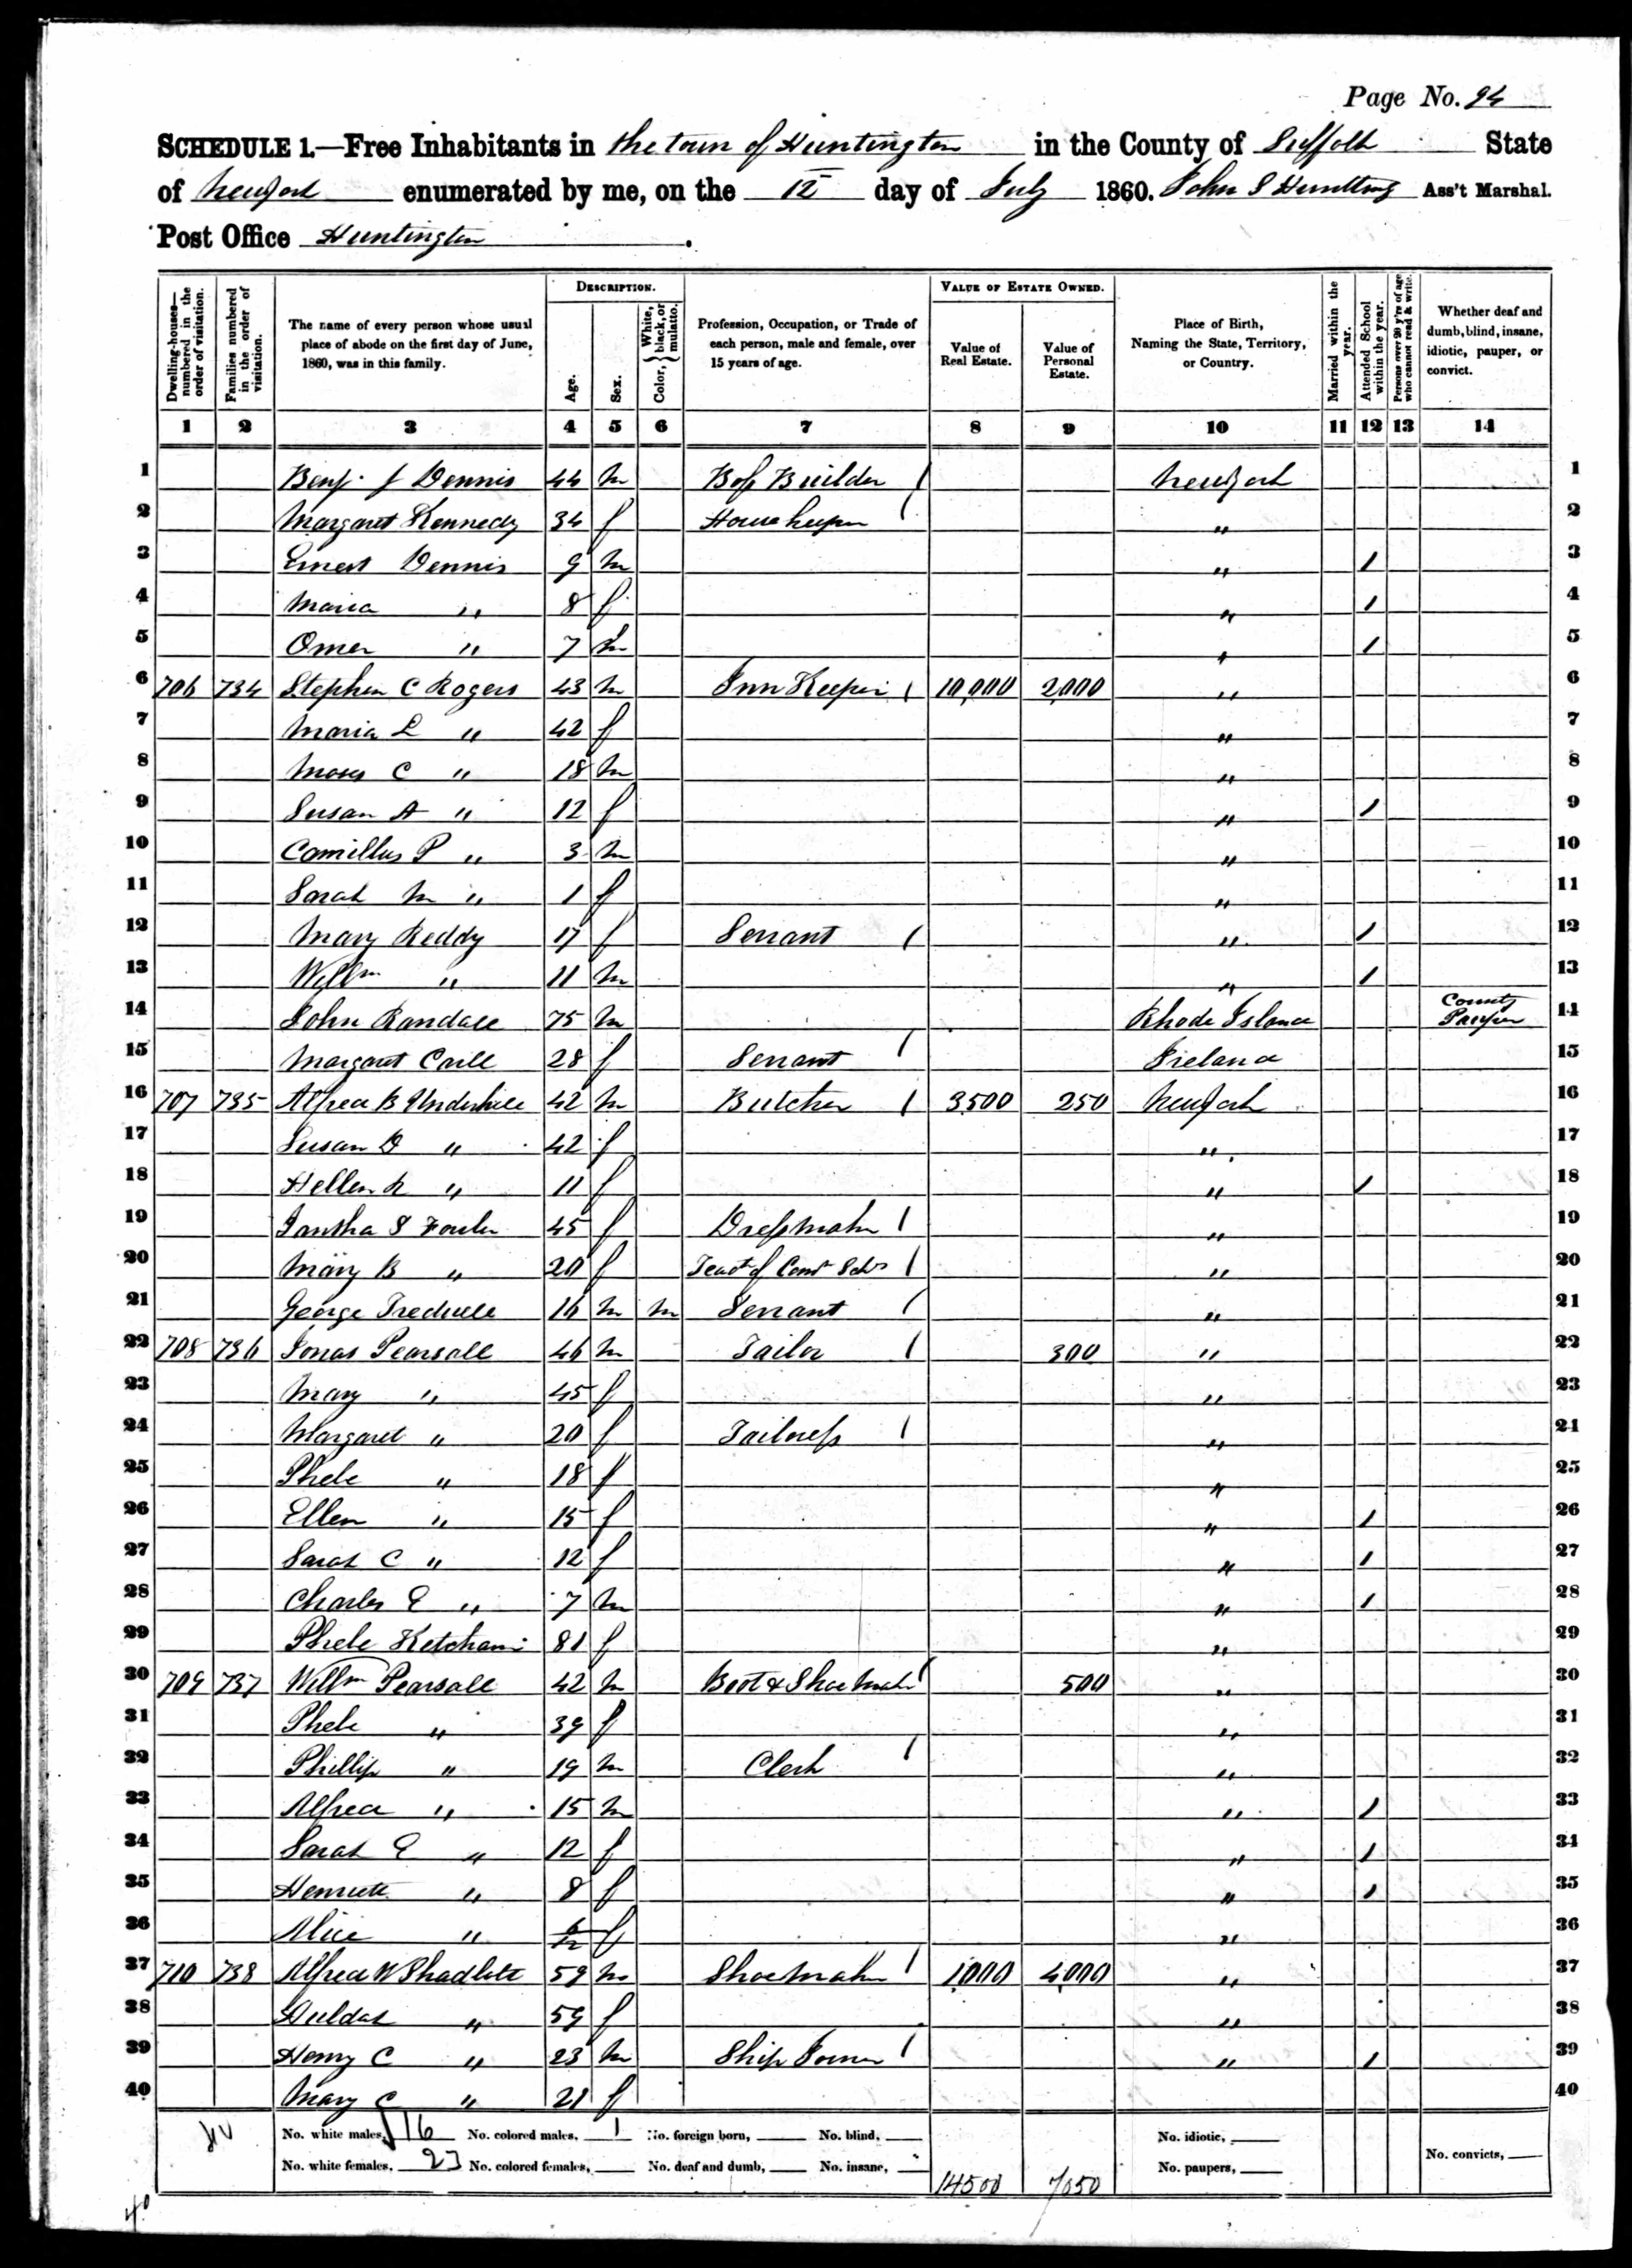 Page No. 94
SCHEDULE 1.—Free Inhabitants in the town of Huntington in the County of Suffolk State
of New York enumerated by me, on the 12 day of July 1860. John S Huntting Ass't Marshal.
Post Office Huntington.
Dwelling-houses—numbered in the order of visitation.
Families numbered in the order of visitation.
The name of every person whose usual place of abode on the first day of June, 1860, was in this family.
DESCRIPTION.
Age.
Sex.
Color, { White, black, or mulatto.
Profession, Occupation, or Trade of each person, male and female, over 15 years of age.
VALUE OF ESTATE OWNED.
Value of Real Estate.
Value of Personal Estate.
Place of Birth, Naming the State, Territory, or Country.
Married within the year.
Attended School within the year.
Persons over 20 y'rs of age who cannot read & write.
Whether deaf and dumb, blind, insane, idiotic, pauper, or convict.
1 2 3 4 5 6 7 8 9 10 11 12 13 14
1 Benj. J Dennis 44 m Builder / New York 1
2 Margaret Kennedy 34 f House keeper / " 2
3 Ernest Dennis 9 m " / 3
4 Maria " 8 f " / 4
5 Omer " 7 m " / 5
6 706 734 Stephen C Rogers 43 m Inn Keeper / 10,000 2,000 " 6
7 Maria L " 42 f " 7
8 Moses C " 18 m " 8
9 Susan A " 12 f " / 9
10 Camillus P " 3 m " 10
11 Sarah M " 1 f " 11
12 Mary Reddy 17 f Servant / " / 12
13 Willm " 11 m " / 13
14 John Randall 75 m Rhode Island County Pauper 14
15 Margaret Carll 28 f Servant / Ireland 15
16 707 735 Alfred B Underhill 42 m Butcher / 3500 250 New York 16
17 Susan D " 42 f " 17
18 Hellen R " 11 f " / 18
19 Iantha S Fowler 45 f Dressmaker / " 19
20 Mary B " 20 f Teacr of Com Schl / " 20
21 George Tredwell 16 m m Servant / " 21
22 708 736 Jonas Pearsall 46 m Tailor / 300 " 22
23 Mary " 45 f " 23
24 Margaret " 20 f Tailoress / " 24
25 Phebe " 18 f " 25
26 Ellen " 15 f " / 26
27 Sarah C " 12 f " / 27
28 Charles E " 7 m " / 28
29 Phebe Ketcham 81 f " 29
30 709 737 Willm Pearsall 42 m Boot & Shoe Maker / 500 " 30
31 Phebe " 39 f " 31
32 Phillip " 19 m Clerk / " 32
33 Alfred " 15 m " / 33
34 Sarah E " 12 f " / 34
35 " 8 f " / 35
36 Alice " 6/12 f " 36
37 710 738 Alfred W Shadbolt 59 m Shoe Maker / 1,000 4,000 " 37
38 Huldah " 59 f " 38
39 Henry C " 23 m Ship Joiner / " / 39
40 Mary C " 21 f 40
No. white males, 16 No. colored males, 1 No. foreign born, No. blind, No. idiotic,
No. white females, 23 No. colored females, No. deaf and dumb, No. insane, 14500 7050 No. paupers, No. convicts,
40